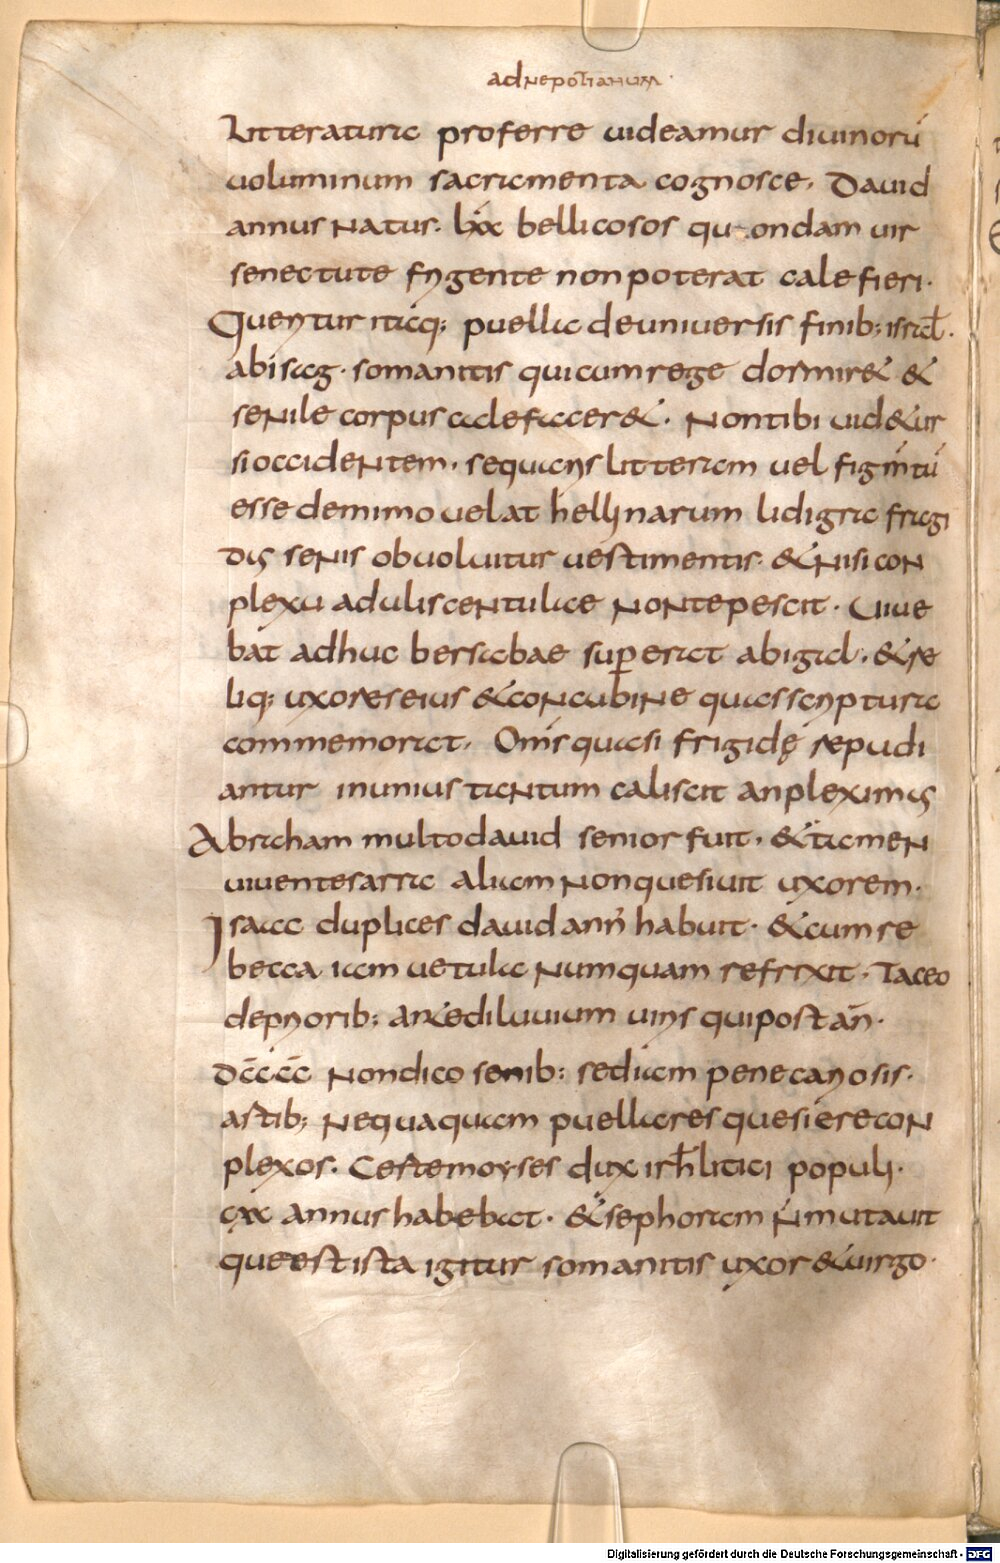 ad nepotianum
Litteraturae proferre uideamur diuinorū
uoluminum sacramenta cognosce. Dauid
annus natus. lxx bellicosos quondam uir
senectute frigente non poterat calefieri.
Queritur itaq; puella de uniuersis finib; israhł.
abisaeg. somanitis qui cum rege dormir& &
senile corpus calefacer&. Non tibi uid&ur
si occidentem. sequaeris litteram uel figm̄tū
esse de mimo uel at hellinarum ludigra fragi
dis senis obuoluitur uestimentis. & nisi con
plexu aduliscentulae non tepescit. Uiue
bat adhuc bersabae sup̱erat abigael. & re
liq; uxores eius & concubine quas scriptura
commemorat. Om̄s quasi frigidę repudi
antur in unius tantum caliscit anpleximis
Abraham multo dauid senior fuit. & tamen
uiuente sarra aliam non quesiuit uxorem.
Isaac duplices dauid ann̄ habuit. & cum re
becca iam uetula numquam refrixit. Taceo
de priorib; ante diluuium uiris qui post an̄.
dc̄c̄c̄c̄ non dico senib; sed iam pene cariosis.
astib; nequaquam puellares quesiere con
plexos. Certe moyses dux isrh̄litici populi.
cxx annus habebat. & sephoram n̄ mutauit
que est ista igitur somanitis uxor & uirgo.
Digitalisierung gefördert durch die Deutsche Forschungsgemeinschaft - DFG